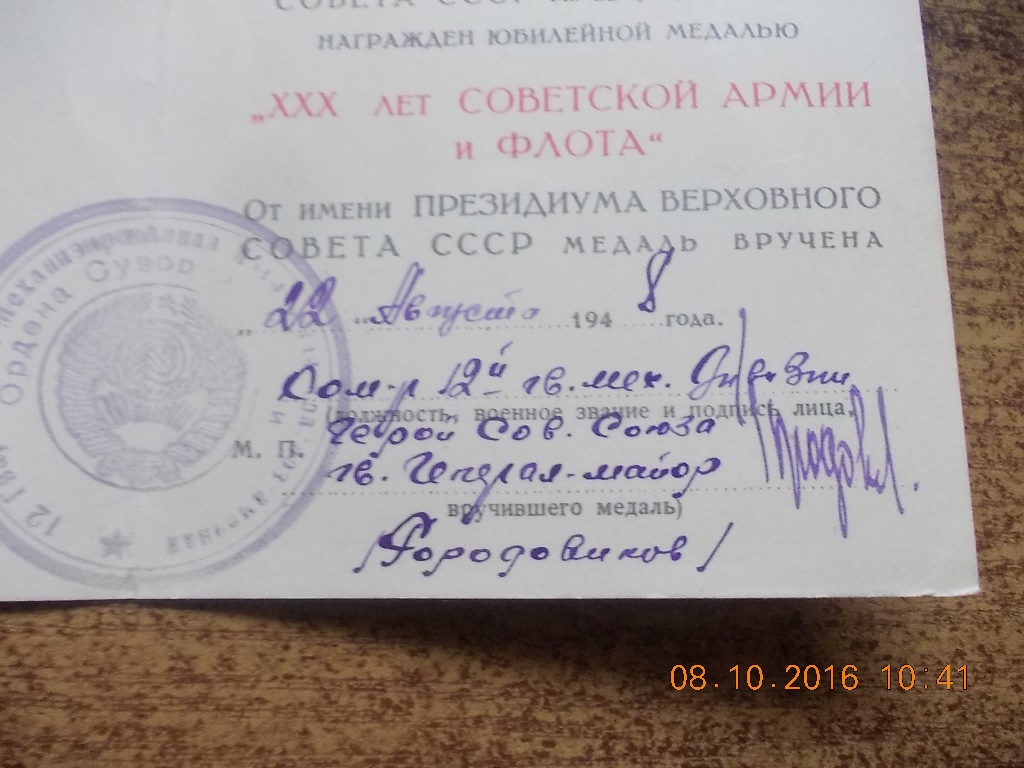 СОВЕТА СССР
НАГРАЖДЕН ЮБИЛЕЙНОЙ МЕДАЛЬЮ
„XXX ЛЕТ СОВЕТСКОЙ АРМИИ
и ФЛОТА“
От имени ПРЕЗИДИУМА ВЕРХОВНОГО
СОВЕТА СССР МЕДАЛЬ ВРУЧЕНА
„22 „ Августа 1948 года.
Ком-р 12й гв. мех. Дивизии
(должность, военное звание и подпись лица,
Герой Сов. Союза
М. П.
гв. Генерал-майор
вручившего медаль)
/Городовиков/
Механизированная
Ордена Сувор
12 ГВ
08.10.2016 10:41